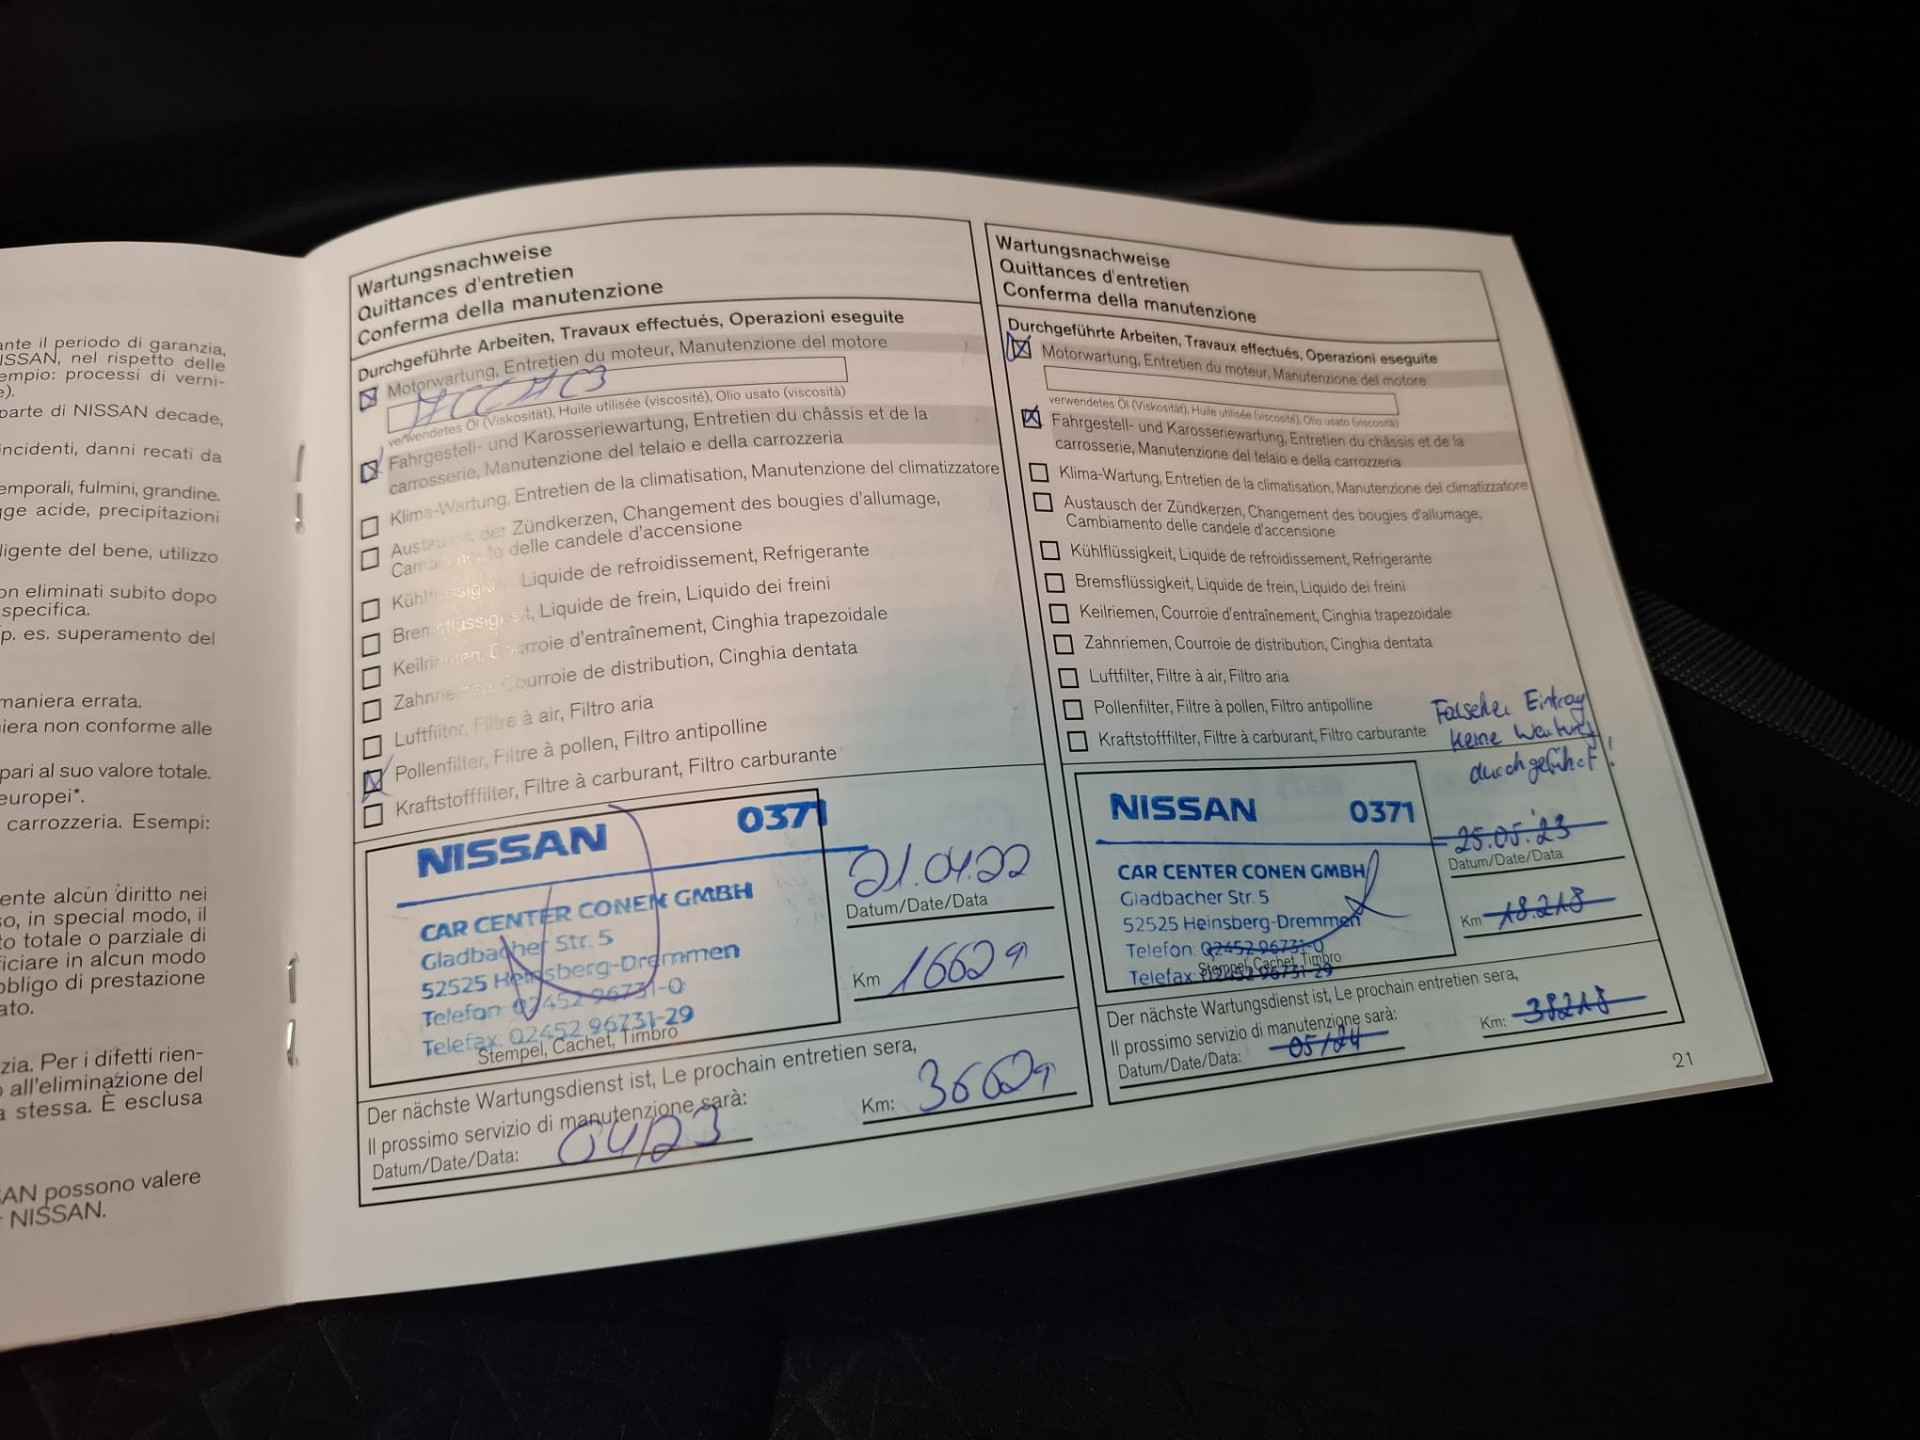 ante il periodo di garanzia,
ISSAN, nel rispetto delle
empio: processi di verni-
e).
parte di NISSAN decade,
incidenti, danni recati da
emporali, fulmini, grandine.
gge acide, precipitazioni
ligente del bene, utilizzo
on eliminati subito dopo
specifica.
p. es. superamento del
maniera errata.
niera non conforme alle
pari al suo valore totale.
europei*.
carrozzeria. Esempi:
ente alcun diritto nei
so, in special modo, il
to totale o parziale di
ficiare in alcun modo
obbligo di prestazione
ato.
zia. Per i difetti rien-
o all'eliminazione del
a stessa. È esclusa
SAN possono valere
r NISSAN.
Wartungsnachweise
Quittances d'entretien
Conferma della manutenzione
Durchgeführte Arbeiten, Travaux effectués, Operazioni eseguite
Motorwartung, Entretien du moteur, Manutenzione del motore
verwendetes Öl (Viskosität), Huile utilisée (viscosité), Olio usato (viscosità)
Fahrgestell- und Karosseriewartung, Entretien du châssis et de la
carrosserie, Manutenzione del telaio e della carrozzeria
Klima-Wartung, Entretien de la climatisation, Manutenzione del climatizzatore
Austausch der Zündkerzen, Changement des bougies d'allumage,
Cambiamento delle candele d'accensione
Kühlflüssigkeit, Liquide de refroidissement, Refrigerante
Bremsflüssigkeit, Liquide de frein, Liquido dei freini
Keilriemen, Courroie d'entraînement, Cinghia trapezoidale
Zahnriemen, Courroie de distribution, Cinghia dentata
Luftfilter, Filtre à air, Filtro aria
Pollenfilter, Filtre à pollen, Filtro antipolline
Kraftstofffilter, Filtre à carburant, Filtro carburante
NISSAN 0371
CAR CENTER CONEN GMBH
Gladbacher Str. 5
52525 Heinsberg-Dremmen
Telefon: 02452 96731-0
Telefax: 02452 96731-29
Stempel, Cachet, Timbro
21.04.22
Datum/Date/Data
Km 16629
Der nächste Wartungsdienst ist, Le prochain entretien sera,
Il prossimo servizio di manutenzione sarà:
Datum/Date/Data: 04/23
Km: 36629
Wartungsnachweise
Quittances d'entretien
Conferma della manutenzione
Durchgeführte Arbeiten, Travaux effectués, Operazioni eseguite
Motorwartung, Entretien du moteur, Manutenzione del motore
verwendetes Öl (Viskosität), Huile utilisée (viscosité), Olio usato (viscosità)
Fahrgestell- und Karosseriewartung, Entretien du châssis et de la
carrosserie, Manutenzione del telaio e della carrozzeria
Klima-Wartung, Entretien de la climatisation, Manutenzione del climatizzatore
Austausch der Zündkerzen, Changement des bougies d'allumage,
Cambiamento delle candele d'accensione
Kühlflüssigkeit, Liquide de refroidissement, Refrigerante
Bremsflüssigkeit, Liquide de frein, Liquido dei freini
Keilriemen, Courroie d'entraînement, Cinghia trapezoidale
Zahnriemen, Courroie de distribution, Cinghia dentata
Luftfilter, Filtre à air, Filtro aria
Pollenfilter, Filtre à pollen, Filtro antipolline
Kraftstofffilter, Filtre à carburant, Filtro carburante
Falscher Eintrag
keine Wartung
durchgeführt!
NISSAN 0371
CAR CENTER CONEN GMBH
Gladbacher Str. 5
52525 Heinsberg-Dremmen
Telefon: 02452 96731-0
Telefax: 02452 96731-29
Stempel, Cachet, Timbro
25.05.23
Datum/Date/Data
Km 18.218
Der nächste Wartungsdienst ist, Le prochain entretien sera,
Il prossimo servizio di manutenzione sarà:
Datum/Date/Data: 05/24
Km: 38218
21